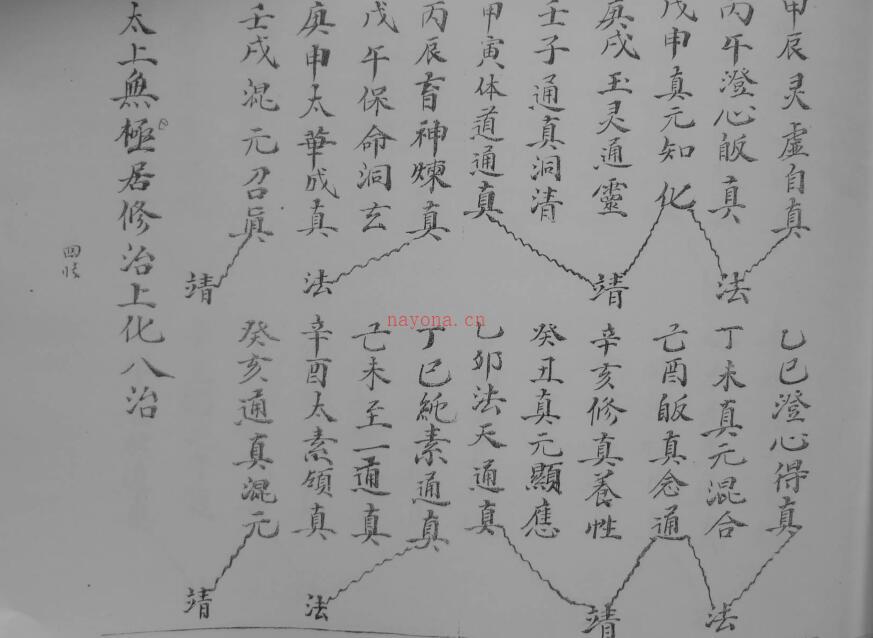 甲辰灵虚自真
乙巳澄心得真
法
丙午澄心皈真
丁未真元混合
法
戊申真元知化
己酉皈真念通
靖
庚戌玉灵通靈
辛亥修真養性
靖
壬子通真洞清
癸丑真元顯應
甲寅体道通真
乙卯法天通真
丙辰育神煉真
丁巳純素通真
戊午保命洞玄
己未至一通真
法
庚申太華成真
辛酉太素領真
法
壬戌混元召眞
癸亥通真混元
靖
靖
太上無極居修治上化八治
nayona.cn